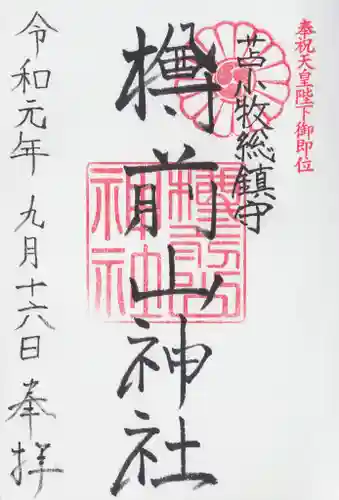 奉祝天皇陛下御即位
苫小牧総鎮守
樽前山神社
樽前山神社
令和元年 九月十六日 奉拝